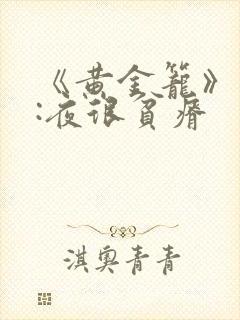 《黄金籠》
:夜很貧瘠
淇奧青青